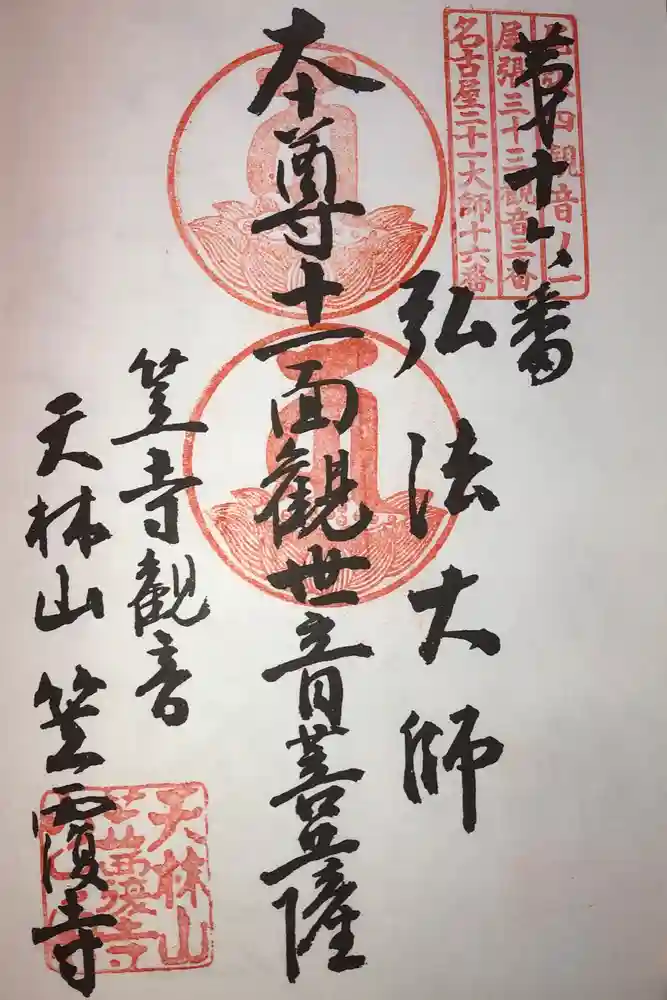 第十六番
四観音ノ一
尾張三十三観音三番
名古屋二十一大師十六番
弘法大師
本尊十一面観世音菩薩
笠寺観音
天林山 笠覆寺
天林山
笠覆寺